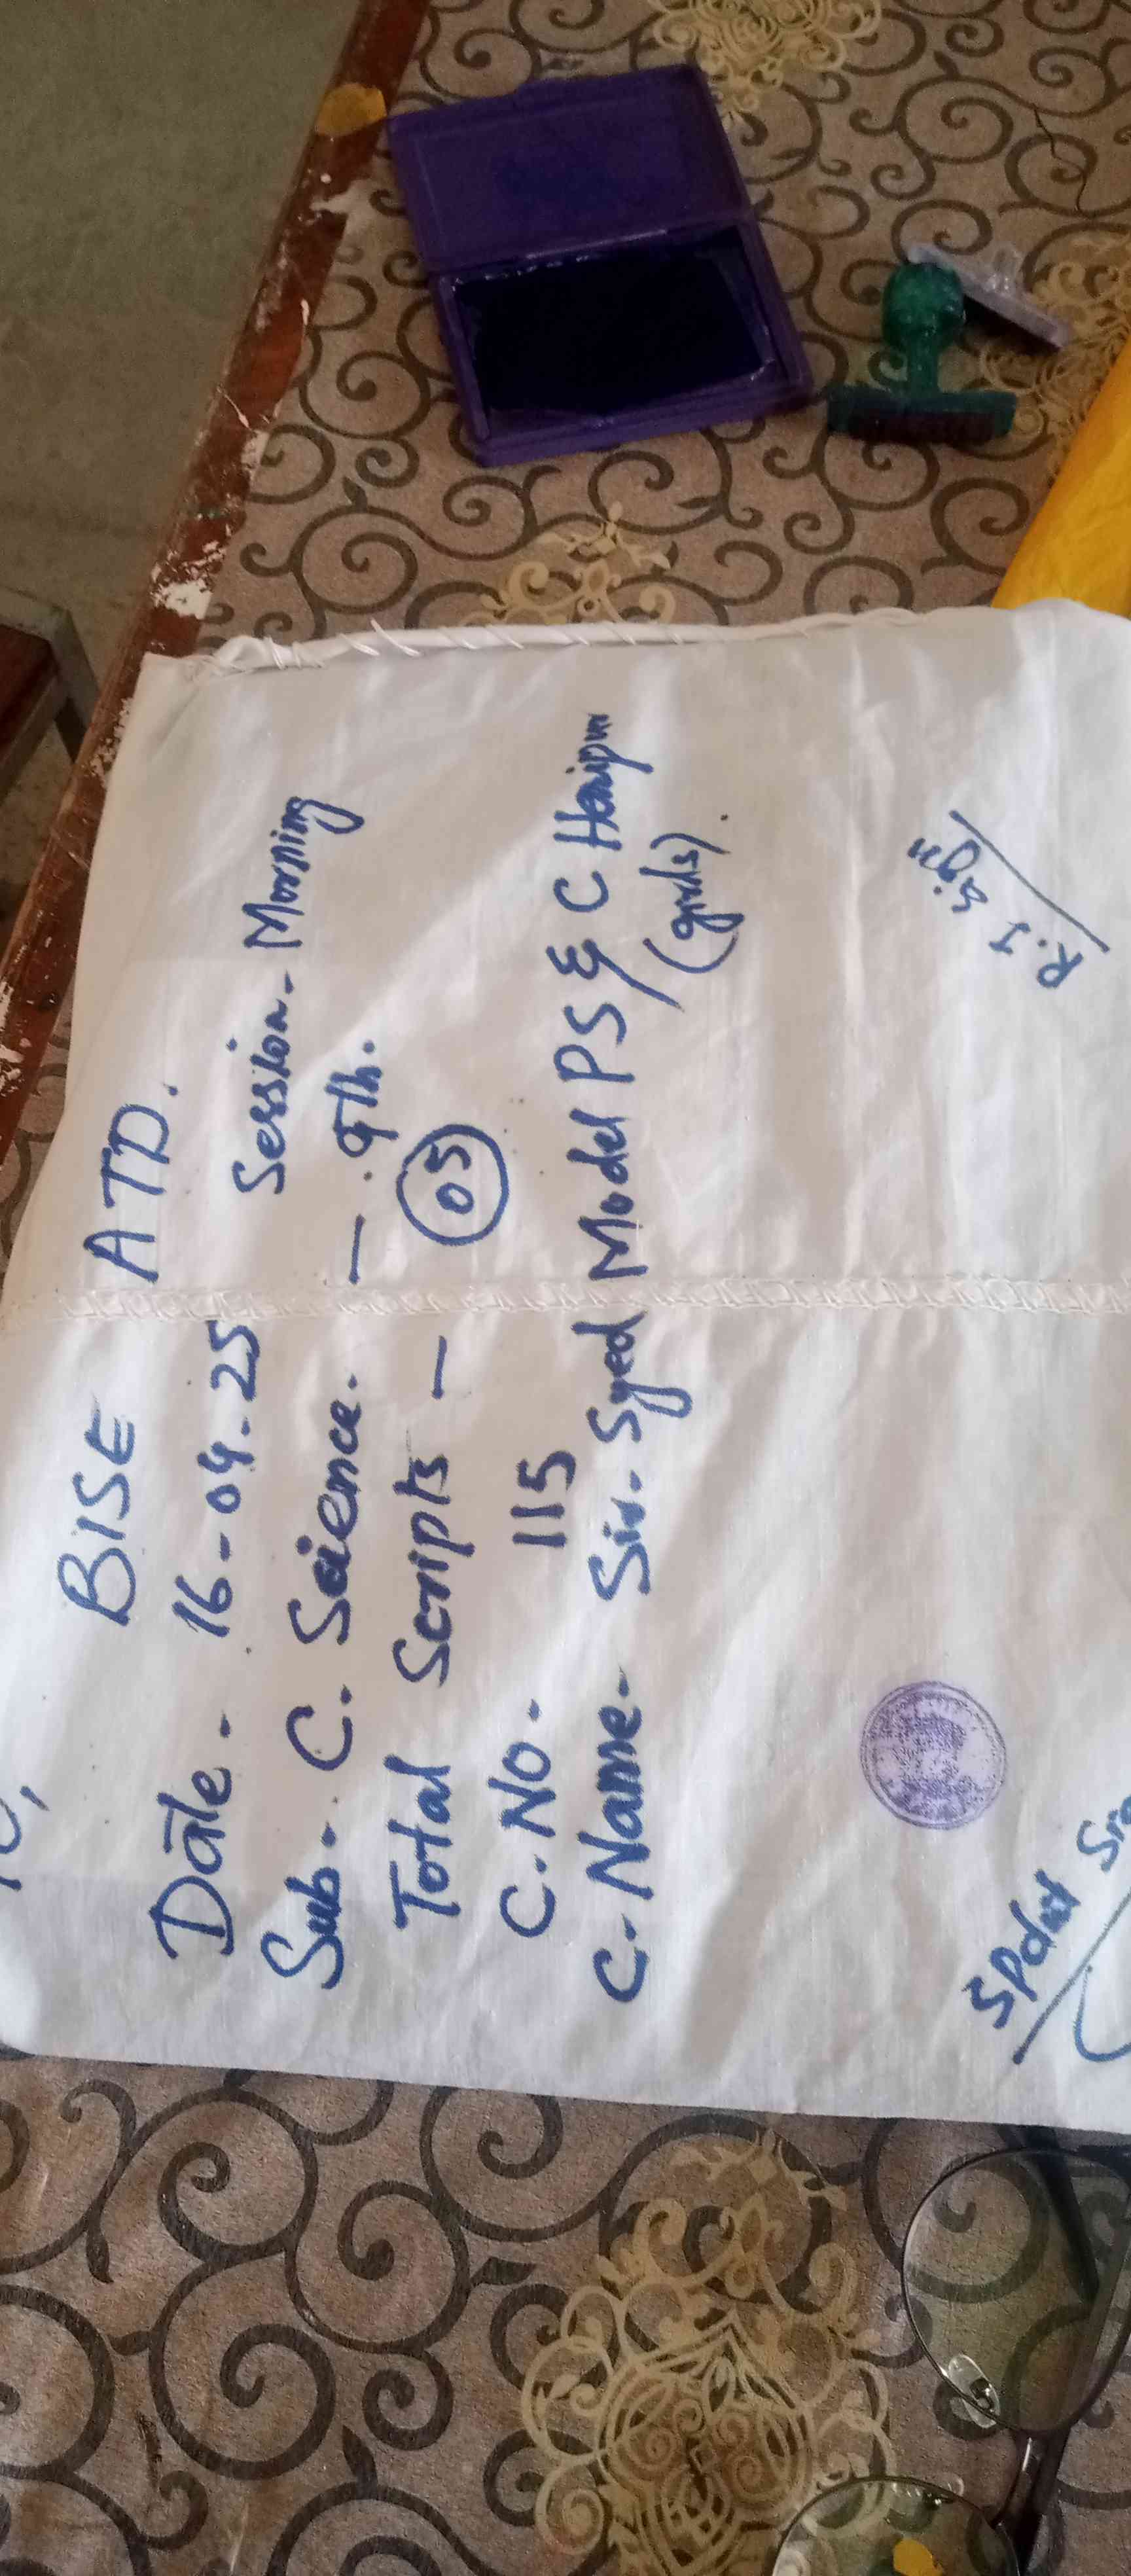 To,
BISE ATD.
Date - 16-04-25 Session - Morning
Sub - C. Science. - 9th.
Total Scripts - 05
C. No. 115
C. Name - Sir Syed Model PS & C Haripur
(girls).
R.I Sign
Spdnt